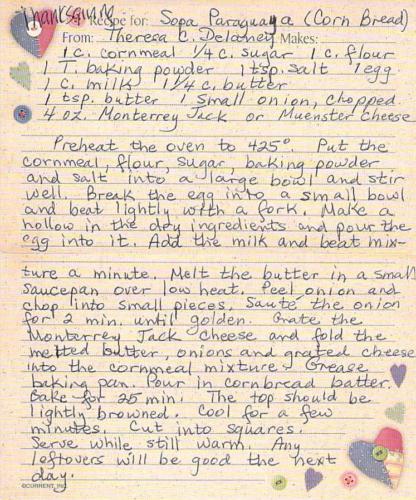 Thanksgiving
Recipe for: Sopa Paraguaya (Corn Bread)
From: Theresa C. Delaney Makes:
1 c. cornmeal 1/4 c. sugar 1 c. flour
1 T. baking powder 1 tsp. salt 1 egg
1 c. milk 1/4 c. butter
1 tsp. butter 1 small onion, chopped
4 oz. Monterrey Jack or Muenster cheese
Preheat the oven to 425°. Put the
cornmeal, flour, sugar, baking powder
and salt into a large bowl and stir
well. Break the egg into a small bowl
and beat lightly with a fork. Make a
hollow in the dry ingredients and pour the
egg into it. Add the milk and beat mix-
ture a minute. Melt the butter in a small
saucepan over low heat. Peel onion and
chop into small pieces. Sauté the onion
for 2 min. until golden. Grate the
Monterrey Jack cheese and fold the
melted butter, onions and grated cheese
into the cornmeal mixture. Grease
baking pan. Pour in cornbread batter.
Bake for 25 min. The top should be
lightly browned. Cool for a few
minutes. Cut into squares.
Serve while still warm. Any
leftovers will be good the next
day.
©CURRENT, INC.